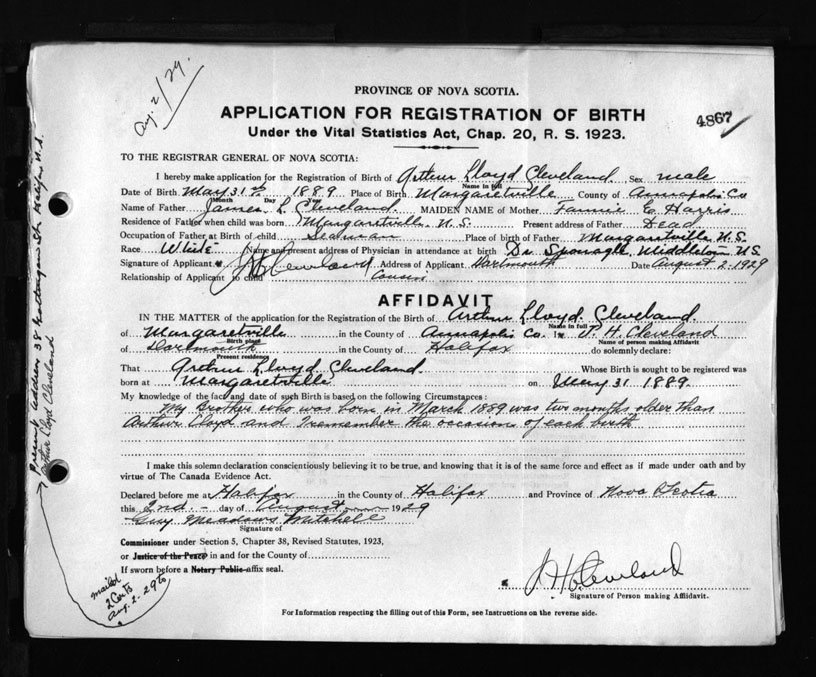 Aug. 2/29.
PROVINCE OF NOVA SCOTIA.
APPLICATION FOR REGISTRATION OF BIRTH
4867
Under the Vital Statistics Act, Chap. 20, R. S. 1923.
TO THE REGISTRAR GENERAL OF NOVA SCOTIA:
I hereby make application for the Registration of Birth of Arthur Lloyd Cleveland. Sex male
Name in full
Date of Birth May 31st 1889 Place of Birth Margaretville County of Annapolis Co
Month Day Year
Name of Father James L. Cleveland. MAIDEN NAME of Mother Fannie E Harris
Residence of Father when child was born Margaretville N.S. Present address of Father Dead
Occupation of Father at Birth of child Seaman Place of birth of Father Margaretville N.S.
Race White Name and present address of Physician in attendance at birth Dr Sponagle Middleton N.S
Signature of Applicant J H Cleveland Address of Applicant Dartmouth Date August 2-1929
Relationship of Applicant to child Cousin
AFFIDAVIT
IN THE MATTER of the application for the Registration of the Birth of Arthur Lloyd Cleveland
Name in full
of Margaretville in the County of Annapolis Co. I, J. H. Cleveland
Birth place Name of person making Affidavit
of Dartmouth in the County of Halifax do solemnly declare:
Present residence
That Arthur Lloyd Cleveland. Whose Birth is sought to be registered was
born at Margaretville on May 31 1889.
My knowledge of the fact and date of such Birth is based on the following Circumstances:
My Brother who was born in March 1889 was two months older than
Arthur Lloyd and I remember the occasion of each birth
I make this solemn declaration conscientiously believing it to be true, and knowing that it is of the same force and effect as if made under oath and by
virtue of The Canada Evidence Act.
Declared before me at Halifax in the County of Halifax and Province of Nova Scotia
this 2nd.- day of August 1929
Guy Meadows Mitchell
Signature of
Commissioner under Section 5, Chapter 38, Revised Statutes, 1923,
or Justice of the Peace in and for the County of
If sworn before a Notary Public affix seal.
J H Cleveland
Signature of Person making Affidavit.
For Information respecting the filling out of this Form, see Instructions on the reverse side.
Present address 38 Gottingen St. Halifax N.S.
Arthur Lloyd Cleveland
mailed
2 Certs
Aug. 2-29